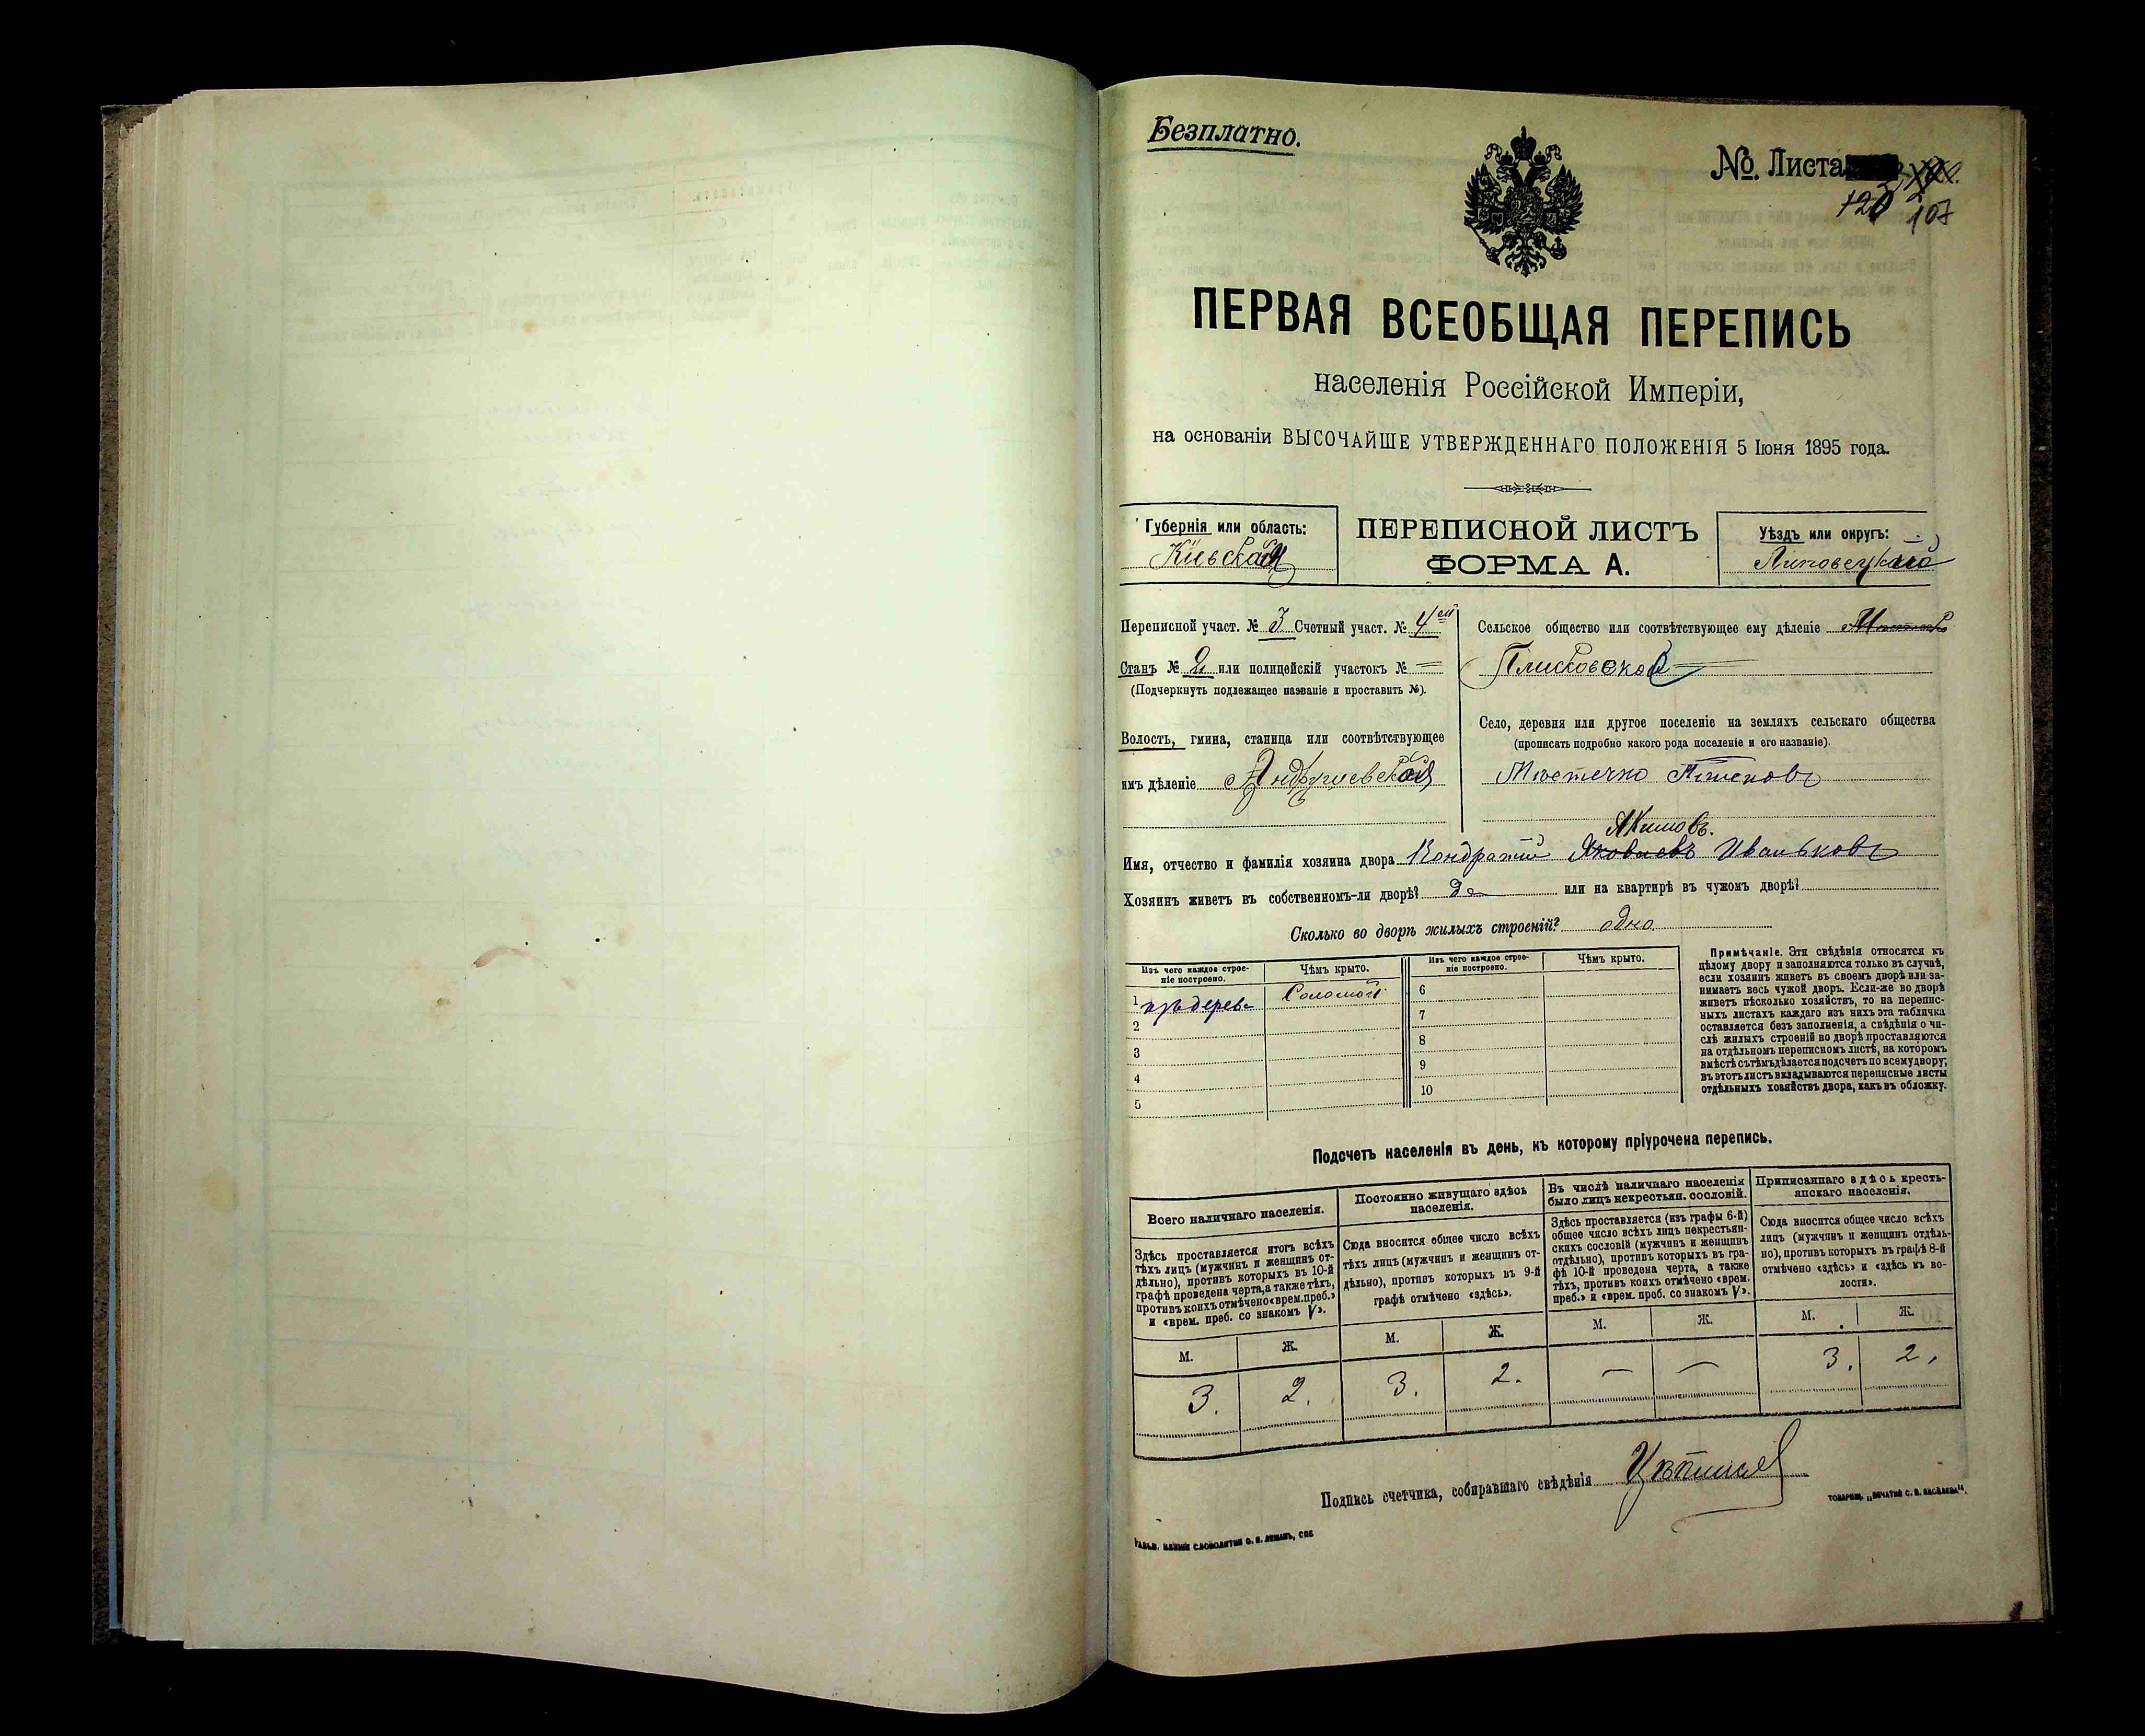 Безплатно.
№ Листа
120 107
ПЕРВАЯ ВСЕОБЩАЯ ПЕРЕПИСЬ
населенія Россійской Имперіи,
на основаніи ВЫСОЧАЙШЕ УТВЕРЖДЕННАГО ПОЛОЖЕНІЯ 5 Іюня 1895 года.
Губернія или область:
Кіевская
ПЕРЕПИСНОЙ ЛИСТЪ
ФОРМА А.
Уѣздъ или округъ:
Липовецкій
Переписной участ. № 3 Счетный участ. № 4ый
Станъ № 2 или полицейскій участокъ №
(Подчеркнуть подлежащее названіе и проставить №).
Волость, гмина, станица или соотвѣтствующее
имъ дѣленіе Андрушевская
Сельское общество или соотвѣтствующее ему дѣленіе
Плисковское
Село, деревня или другое поселеніе на земляхъ сельскаго общества
(прописать подробно какого рода поселеніе и его названіе).
Мѣстечко Плисковъ
Акимовъ.
Имя, отчество и фамилія хозяина двора Кондратій Яковлевъ Иваньковъ
Хозяинъ живетъ въ собственномъ-ли дворѣ? да или на квартирѣ въ чужомъ дворѣ?
Сколько во дворѣ жилыхъ строеній? одно
Изъ чего каждое строе-
ніе построено.
Чѣмъ крыто.
Изъ чего каждое строе-
ніе построено.
Чѣмъ крыто.
1 изъ дерева Соломой 6
2 7
3 8
4 9
5 10
Примѣчаніе. Эти свѣдѣнія относятся къ
цѣлому двору и заполняются только въ случаѣ,
если хозяинъ живетъ въ своемъ дворѣ или за-
нимаетъ весь чужой дворъ. Если-же во дворѣ
живетъ нѣсколько хозяйствъ, то на перепис-
ныхъ листахъ каждаго изъ нихъ эта табличка
оставляется безъ заполненія, а свѣдѣнія о чи-
слѣ жилыхъ строеній во дворѣ проставляются
на отдѣльномъ переписномъ листѣ, на которомъ
вмѣстѣ съ тѣмъ дѣлается подсчетъ по всему двору;
въ этотъ листъ вкладываются переписные листы
отдѣльныхъ хозяйствъ двора, какъ въ обложку.
Подсчетъ населенія въ день, къ которому пріурочена перепись.
Всего наличнаго населенія.
Здѣсь проставляется итогъ всѣхъ
тѣхъ лицъ (мужчинъ и женщинъ от-
дѣльно), противъ которыхъ въ 10-й
графѣ проведена черта, а также тѣхъ,
противъ коихъ отмѣчено «врем. преб.»
и «врем. преб. со знакомъ V».
Постоянно живущаго здѣсь
населенія.
Сюда вносится общее число всѣхъ
тѣхъ лицъ (мужчинъ и женщинъ от-
дѣльно), противъ которыхъ въ 9-й
графѣ отмѣчено «здѣсь».
Въ числѣ наличнаго населенія
было лицъ некрестьян. сословій.
Здѣсь проставляется (изъ графы 6-й)
общее число всѣхъ лицъ некрестьян-
скихъ сословій (мужчинъ и женщинъ
отдѣльно), противъ которыхъ въ гра-
фѣ 10-й проведена черта, а также
тѣхъ, противъ коихъ отмѣчено «врем.
преб.» и «врем. преб. со знакомъ V».
Приписаннаго здѣсь кресть-
янскаго населенія.
Сюда вносится общее число всѣхъ
лицъ (мужчинъ и женщинъ отдѣль-
но), противъ которыхъ въ графѣ 8-й
отмѣчено «здѣсь» и «здѣсь къ во-
лости».
М. Ж. М. Ж. М. Ж. М. Ж.
3. 2. 3. 2. — — 3. 2.
Подпись счетчика, собиравшаго свѣдѣнія